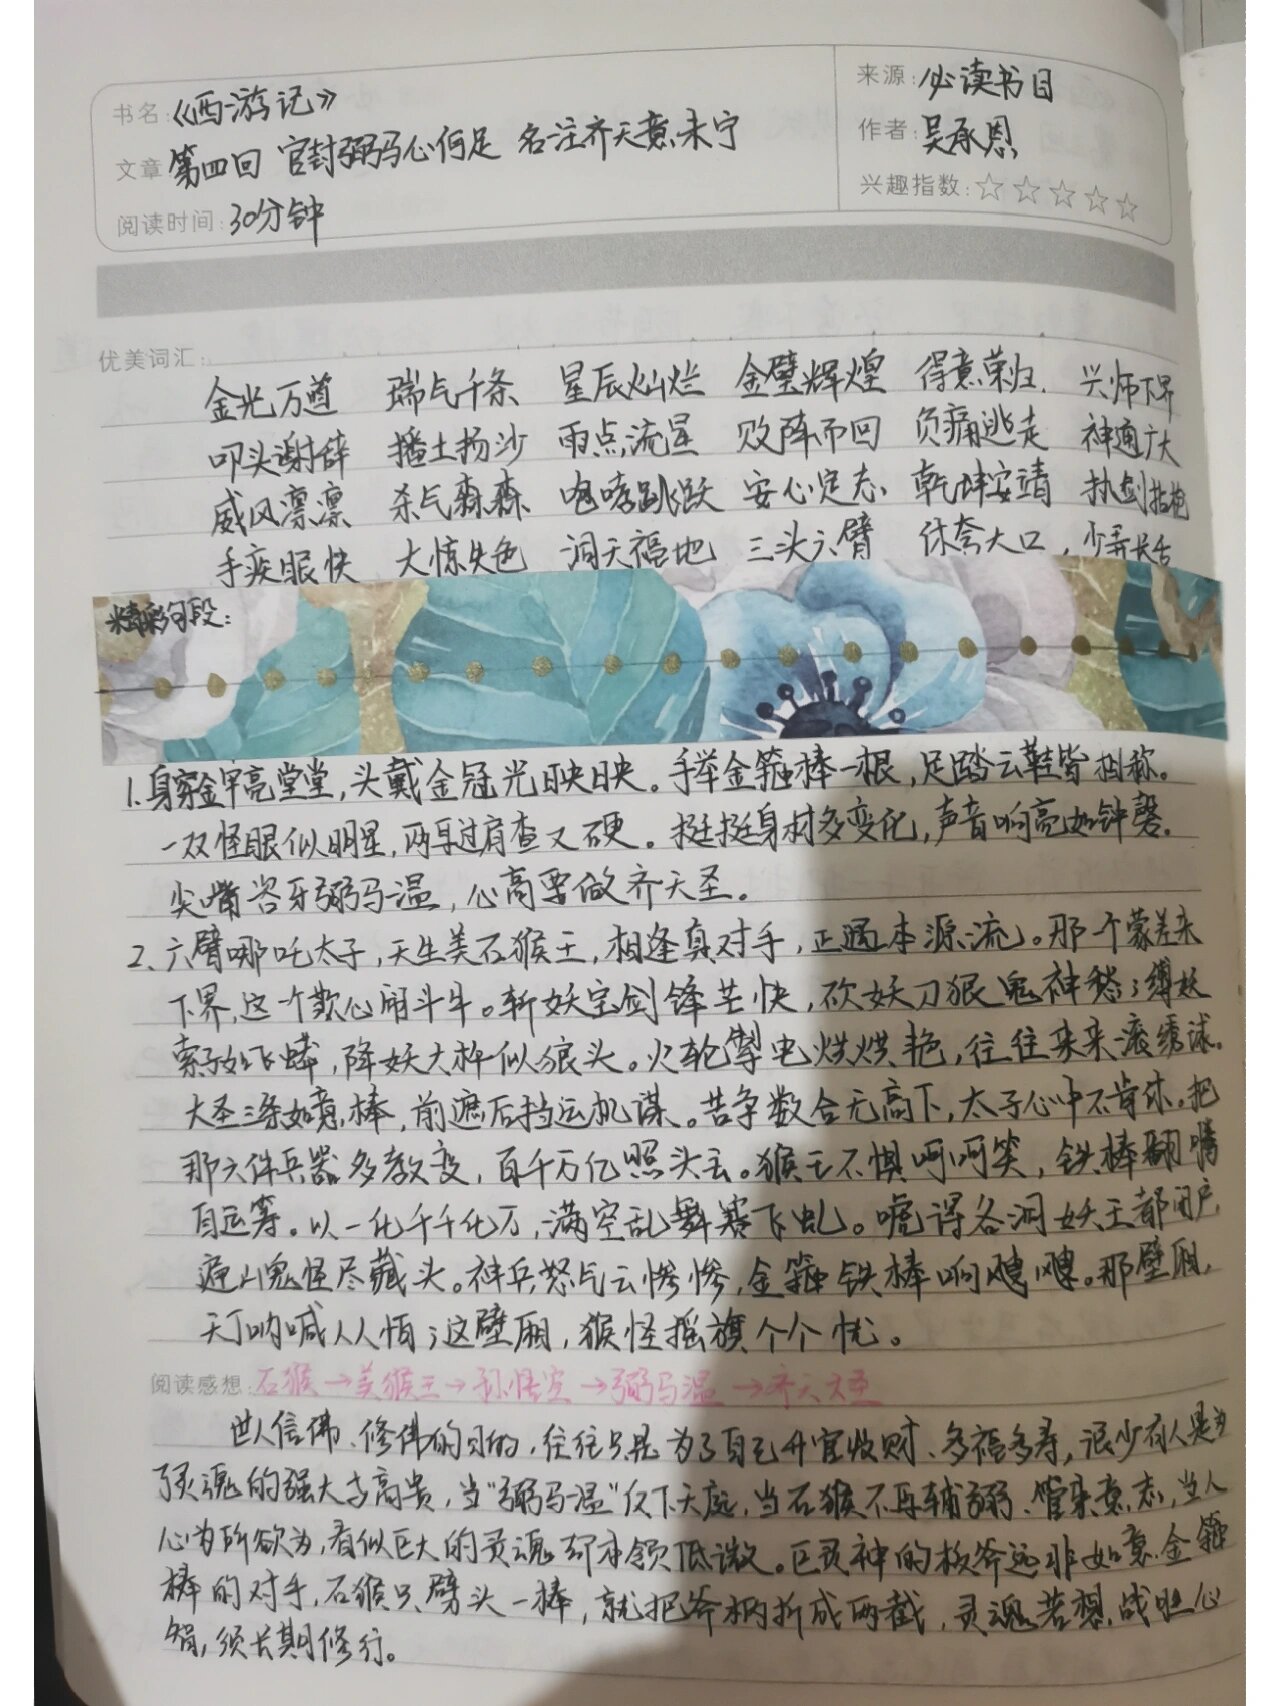 书名:《西游记》
文章:第四回 官封弼马心何足 名注齐天意未宁
阅读时间:30分钟
来源:必读书目
作者:吴承恩
兴趣指数:☆☆☆☆☆
优美词汇:
金光万道 瑞气千条 星辰灿烂 金壁辉煌 得意荣归 兴师下界
叩头谢辞 播土扬沙 雨点流星 败阵而回 负痛逃走 神通广大
威风凛凛 杀气森森 咆哮跳跃 安心定志 乾坤安靖 执剑拈枪
手疾眼快 大惊失色 洞天福地 三头六臂 休夸大口,少弄长舌
精彩句段:
1.身穿金甲亮堂堂,头戴金冠光映映。手举金箍棒一根,足踏云鞋皆相称。
一双怪眼似明星,两耳过肩查又硬。挺挺身材多变化,声音响亮如钟磬。
尖嘴咨牙弼马温,心高要做齐天圣。
2、六臂哪吒太子,天生美石猴王,相逢真对手,正遇本源流。那个蒙差来
下界,这个欺心闹斗牛。斩妖宝剑锋芒快,砍妖刀狠鬼神愁;缚妖
索子如飞蟒,降妖大杵似狼头。火轮掣电烘烘艳,往往来来滚绣球。
大圣三条如意棒,前遮后挡运机谋。苦争数合无高下,太子心中不肯休。把
那六件兵器多教变,百千万亿照头丢。猴王不惧呵呵笑,铁棒翻腾
自运筹。以一化千千化万,满空乱舞赛飞虬。唬得各洞妖王都闭户,
遍山鬼怪尽藏头。神兵怒气云惨惨,金箍铁棒响飕飕。那壁厢,
天丁呐喊人人怕;这壁厢,猴怪摇旗个个忧。
阅读感想:石猴→美猴王→孙悟空→弼马温→齐天大圣
世人信佛、修佛的目的,往往只是为了自己升官收财、多福多寿,很少有人是为
了灵魂的强大与高贵,当"弼马温"反下天庭,当石猴不再辅弼、管束意志,当人
心为所欲为,看似巨大的灵魂却本领低微。巨灵神的板斧远非如意金箍
棒的对手,石猴只劈头一棒,就把斧柄折成两截,灵魂若想战胜心
猿,须长期修行。